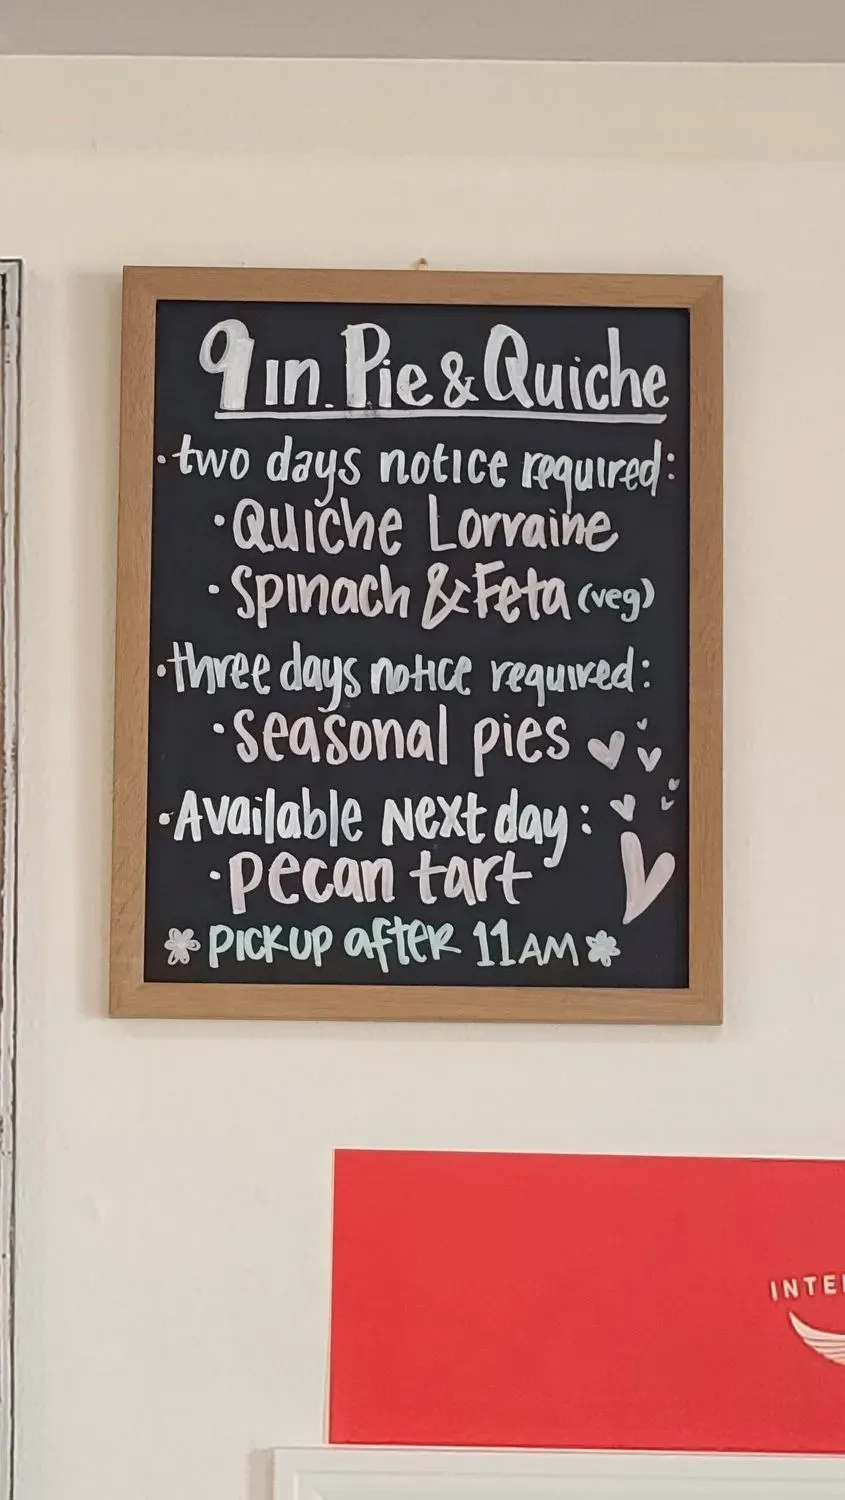 9 in. Pie & Quiche
• two days notice required:
• Quiche Lorraine
• Spinach & Feta (veg)
• three days notice required:
• seasonal pies
• Available Next day:
• pecan tart
PICKUP after 11AM